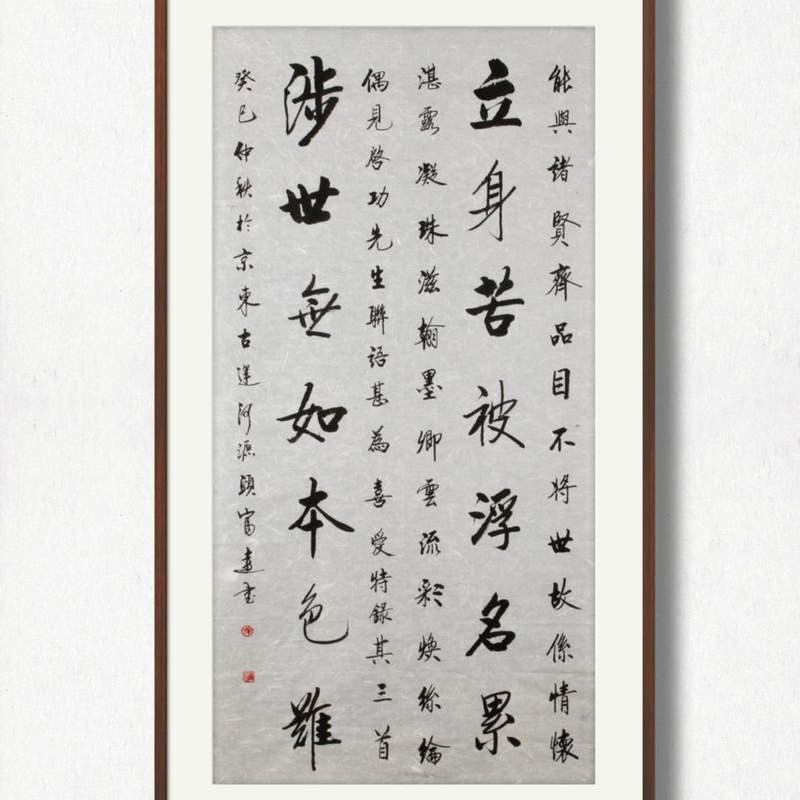 能與諸賢齊品目不將世故係情懷
立身苦被浮名累
湛露凝珠滋翰墨卿雲流彩煥絲綸
偶見啓功先生聯語甚為喜愛特錄其三首
涉世無如本色難
癸巳仲秋於京東古運河源頭富達書